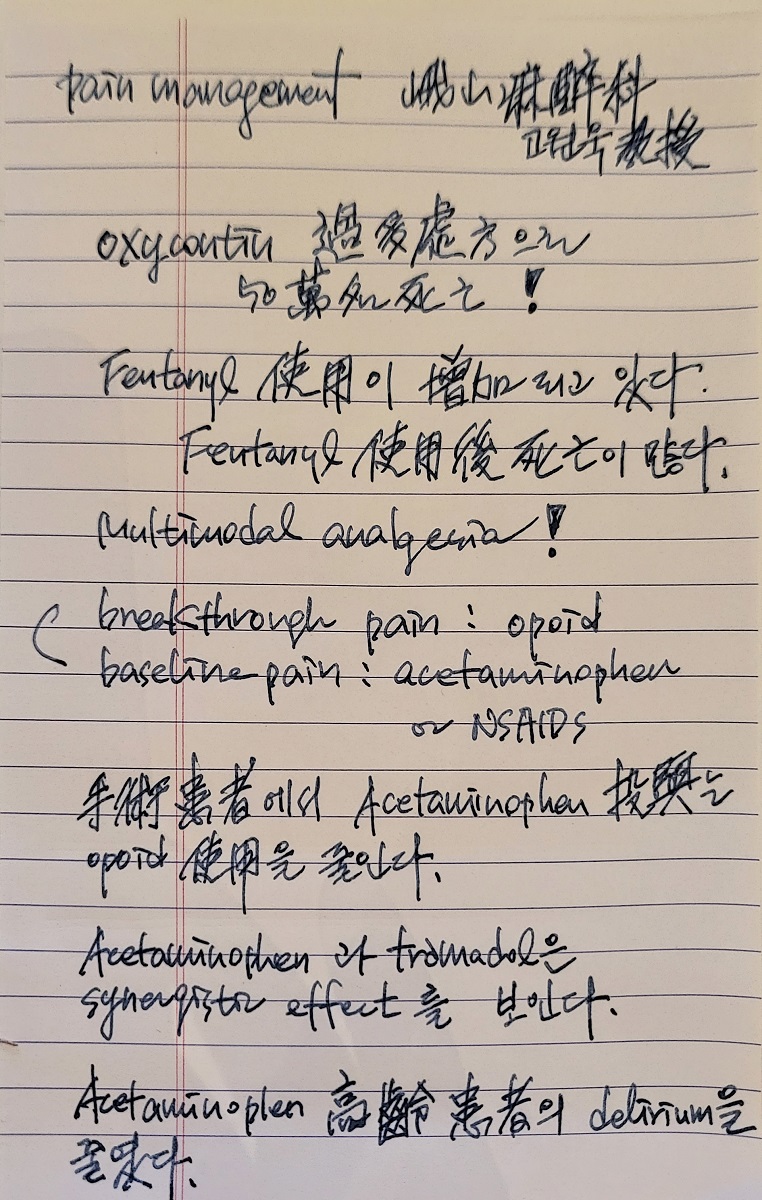 pain management 峨山麻醉科
고원욱 敎授
oxycontin 過多處方으로
50萬名 死亡!
Fentanyl 使用이 增加되고 있다.
Fentanyl 使用後 死亡이 많다.
Multimodal analgesia!
breakthrough pain : opoid
baseline pain : acetaminophen
or NSAIDS
手術患者에서 Acetaminophen 投與는
opoid 使用을 줄인다.
Acetaminophen과 tromadol은
synergistic effect를 보인다.
Acetaminophen 高齡患者의 delirium을
줄였다.